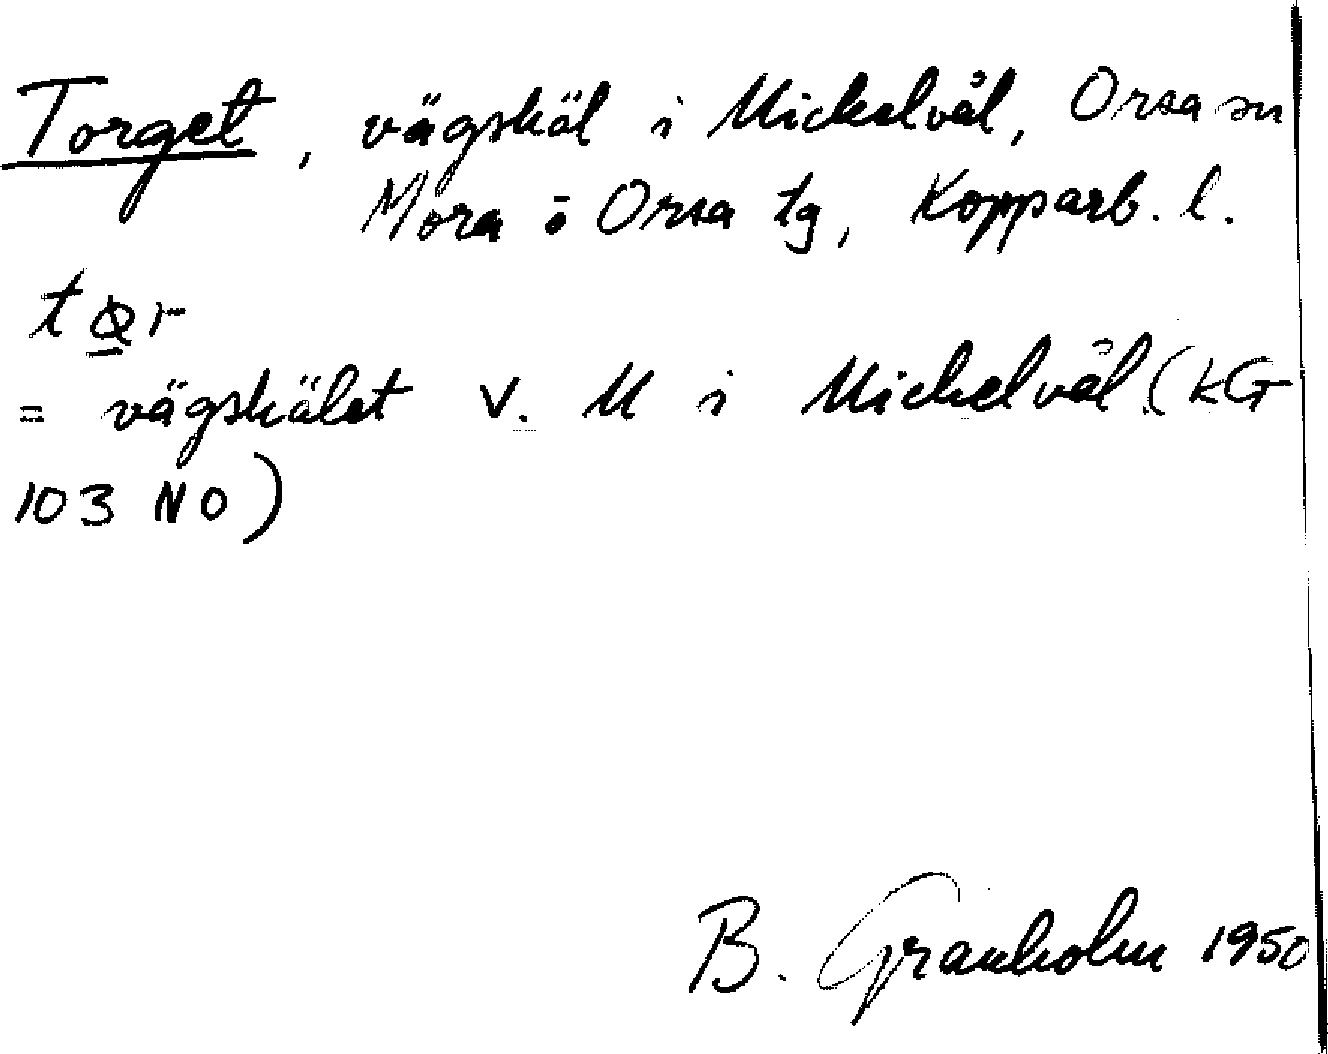 Torget, vägskäl i Mickelvål, Orsa sn
Mora o Orsa tg, Kopparb. l.
= vägskälet V. M i Mickelvål (kG
103 NO)
B. Granholm 1950